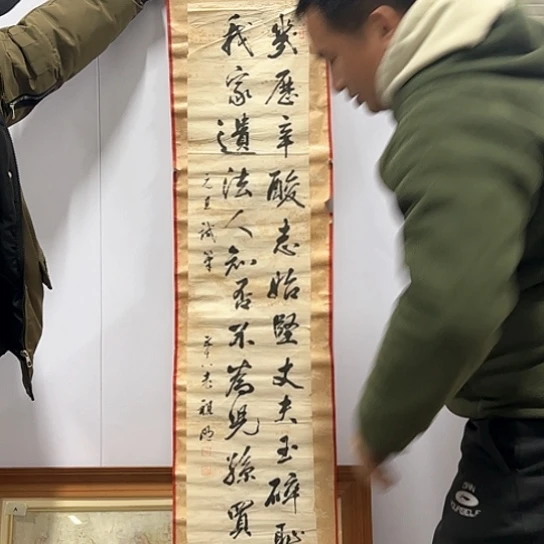 幾歷辛酸志始堅丈夫玉碎恥
我家遺法人知否不為兒孫買
元旦試筆